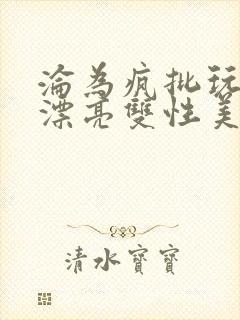 淪為瘋批玩
漂亮雙性美
清水寶寶